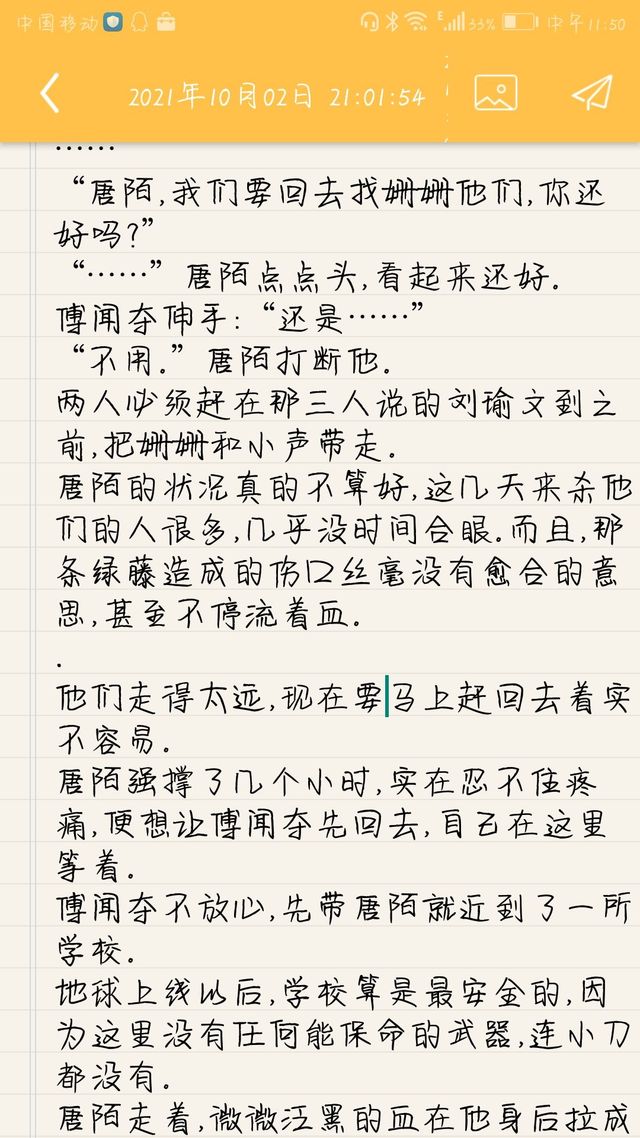 中国移动 33% 中午11:50
2021年10月02日 21:01:54
……
“唐陌,我们要回去找姗姗他们,你还
好吗?”
“……”唐陌点点头,看起来还好.
傅闻夺伸手:“还是……”
“不用.”唐陌打断他.
两人必须赶在那三人说的刘瑜文到之
前,把姗姗和小声带走.
唐陌的状况真的不算好,这几天来杀他
们的人很多,几乎没时间合眼.而且,那
条绿藤造成的伤口丝毫没有愈合的意
思,甚至不停流着血.
.
他们走得太远,现在要马上赶回去着实
不容易.
唐陌强撑了几个小时,实在忍不住疼
痛,便想让傅闻夺先回去,自己在这里
等着.
傅闻夺不放心,先带唐陌就近到了一所
学校.
地球上线以后,学校算是最安全的,因
为这里没有任何能保命的武器,连小刀
都没有.
唐陌走着,微微泛黑的血在他身后拉成